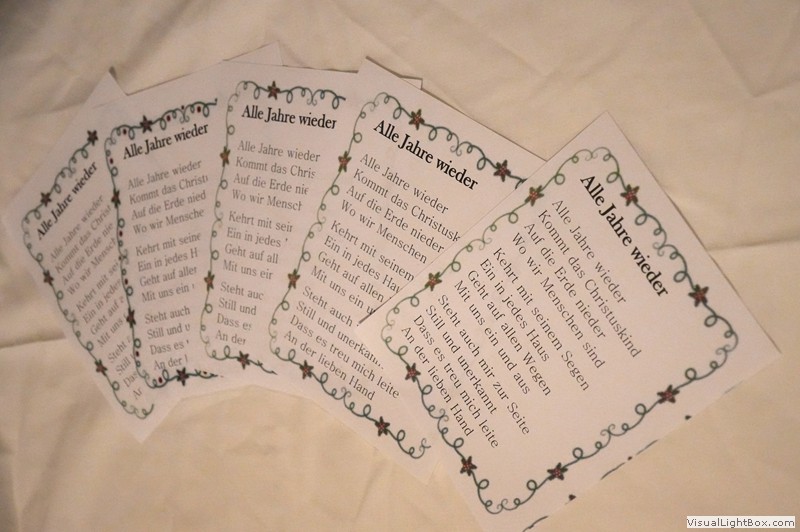 Alle Jahre wieder
Alle Jahre wieder
Kommt das
Auf die Erde
Wo wir
Kehrt mit
Ein in jedes
Geht auf
Mit uns
Steht
Still
Dass
An
Alle Jahre wieder
Alle Jahre wieder
Kommt das Christ
Auf die Erde nied
Wo wir Mensche
Kehrt mit seine
Ein in jedes H
Geht auf aller
Mit uns ein
Steht auc
Still und u
Dass es
An der
Alle Jahre wieder
Alle Jahre wieder
Kommt das Chris
Auf die Erde nie
Wo wir Mensch
Kehrt mit seine
Ein in jedes
Geht auf all
Mit uns ein
Steht auc
Still und
Dass es
An der
Alle Jahre wieder
Alle Jahre wieder
Kommt das Christusk
Auf die Erde nieder
Wo wir Menschen
Kehrt mit seinem
Ein in jedes Hau
Geht auf allen
Mit uns ein u
Steht auch
Still und unerkan
Dass es treu mich leite
An der lieben Hand
Alle Jahre wieder
Alle Jahre wieder
Kommt das Christuskind
Auf die Erde nieder
Wo wir Menschen sind
Kehrt mit seinem Segen
Ein in jedes Haus
Geht auf allen Wegen
Mit uns ein und aus
Steht auch mir zur Seite
Still und unerkannt
Dass es treu mich leite
An der lieben Hand
VisualLightBox.com